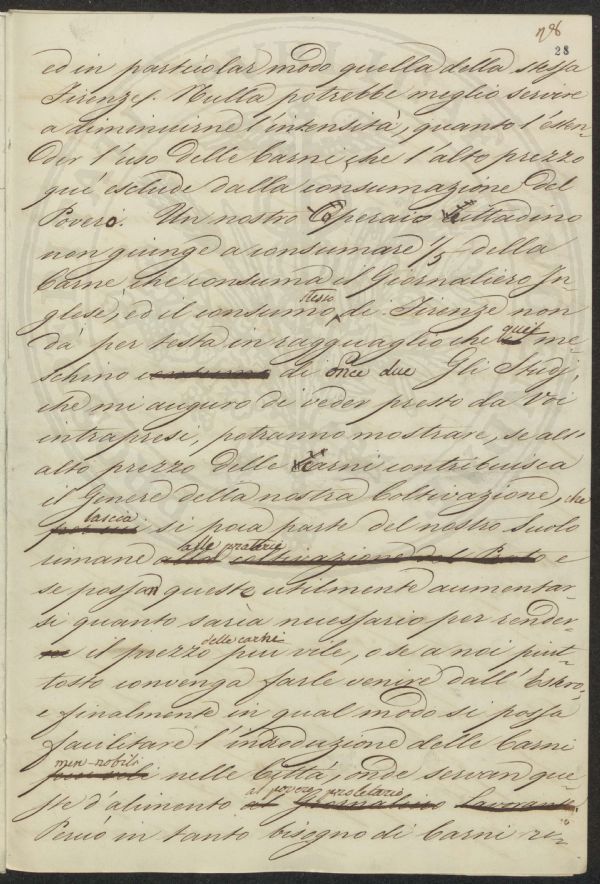 28
ed in particolar modo quella della stessa
Firenze. Nulla potrebbe meglio servire
a diminuirne l'intensità, quanto l'esten-
der l'uso delle Carni, che l'alto prezzo
qui esclude dalla consumazione del
Povero. Un nostro Operaio Cittadino
non giunge a consumare 1/5 della
Carne, che consuma il Giornaliero In-
glese, ed il consumo stesso di Firenze non
dà per testa in ragguaglio che quel me-
schino consumo di once due Gli Studj,
che mi auguro di veder presto da Voi
intrapresi, potranno mostrare, se all'
alto prezzo delle Carni contribuisca
il Genere della nostra Coltivazione, che
lascia
si poca parte del nostro suolo
rimane alla coltivazione del Prato alle praterie e
se possan queste utilmente aumentar-
si quanto saria necessario per render-
ne il prezzo delle carni più vile, o se a noi piut-
tosto convenga farle venire dall'Estero,
e finalmente in qual modo si possa
facilitare l'introduzione delle Carni
men-nobili
nelle Città, onde servan que-
ste d'alimento al povero proletario al Giornaliero lavorante.
Perciò in tanto bisogno di Carni ri-